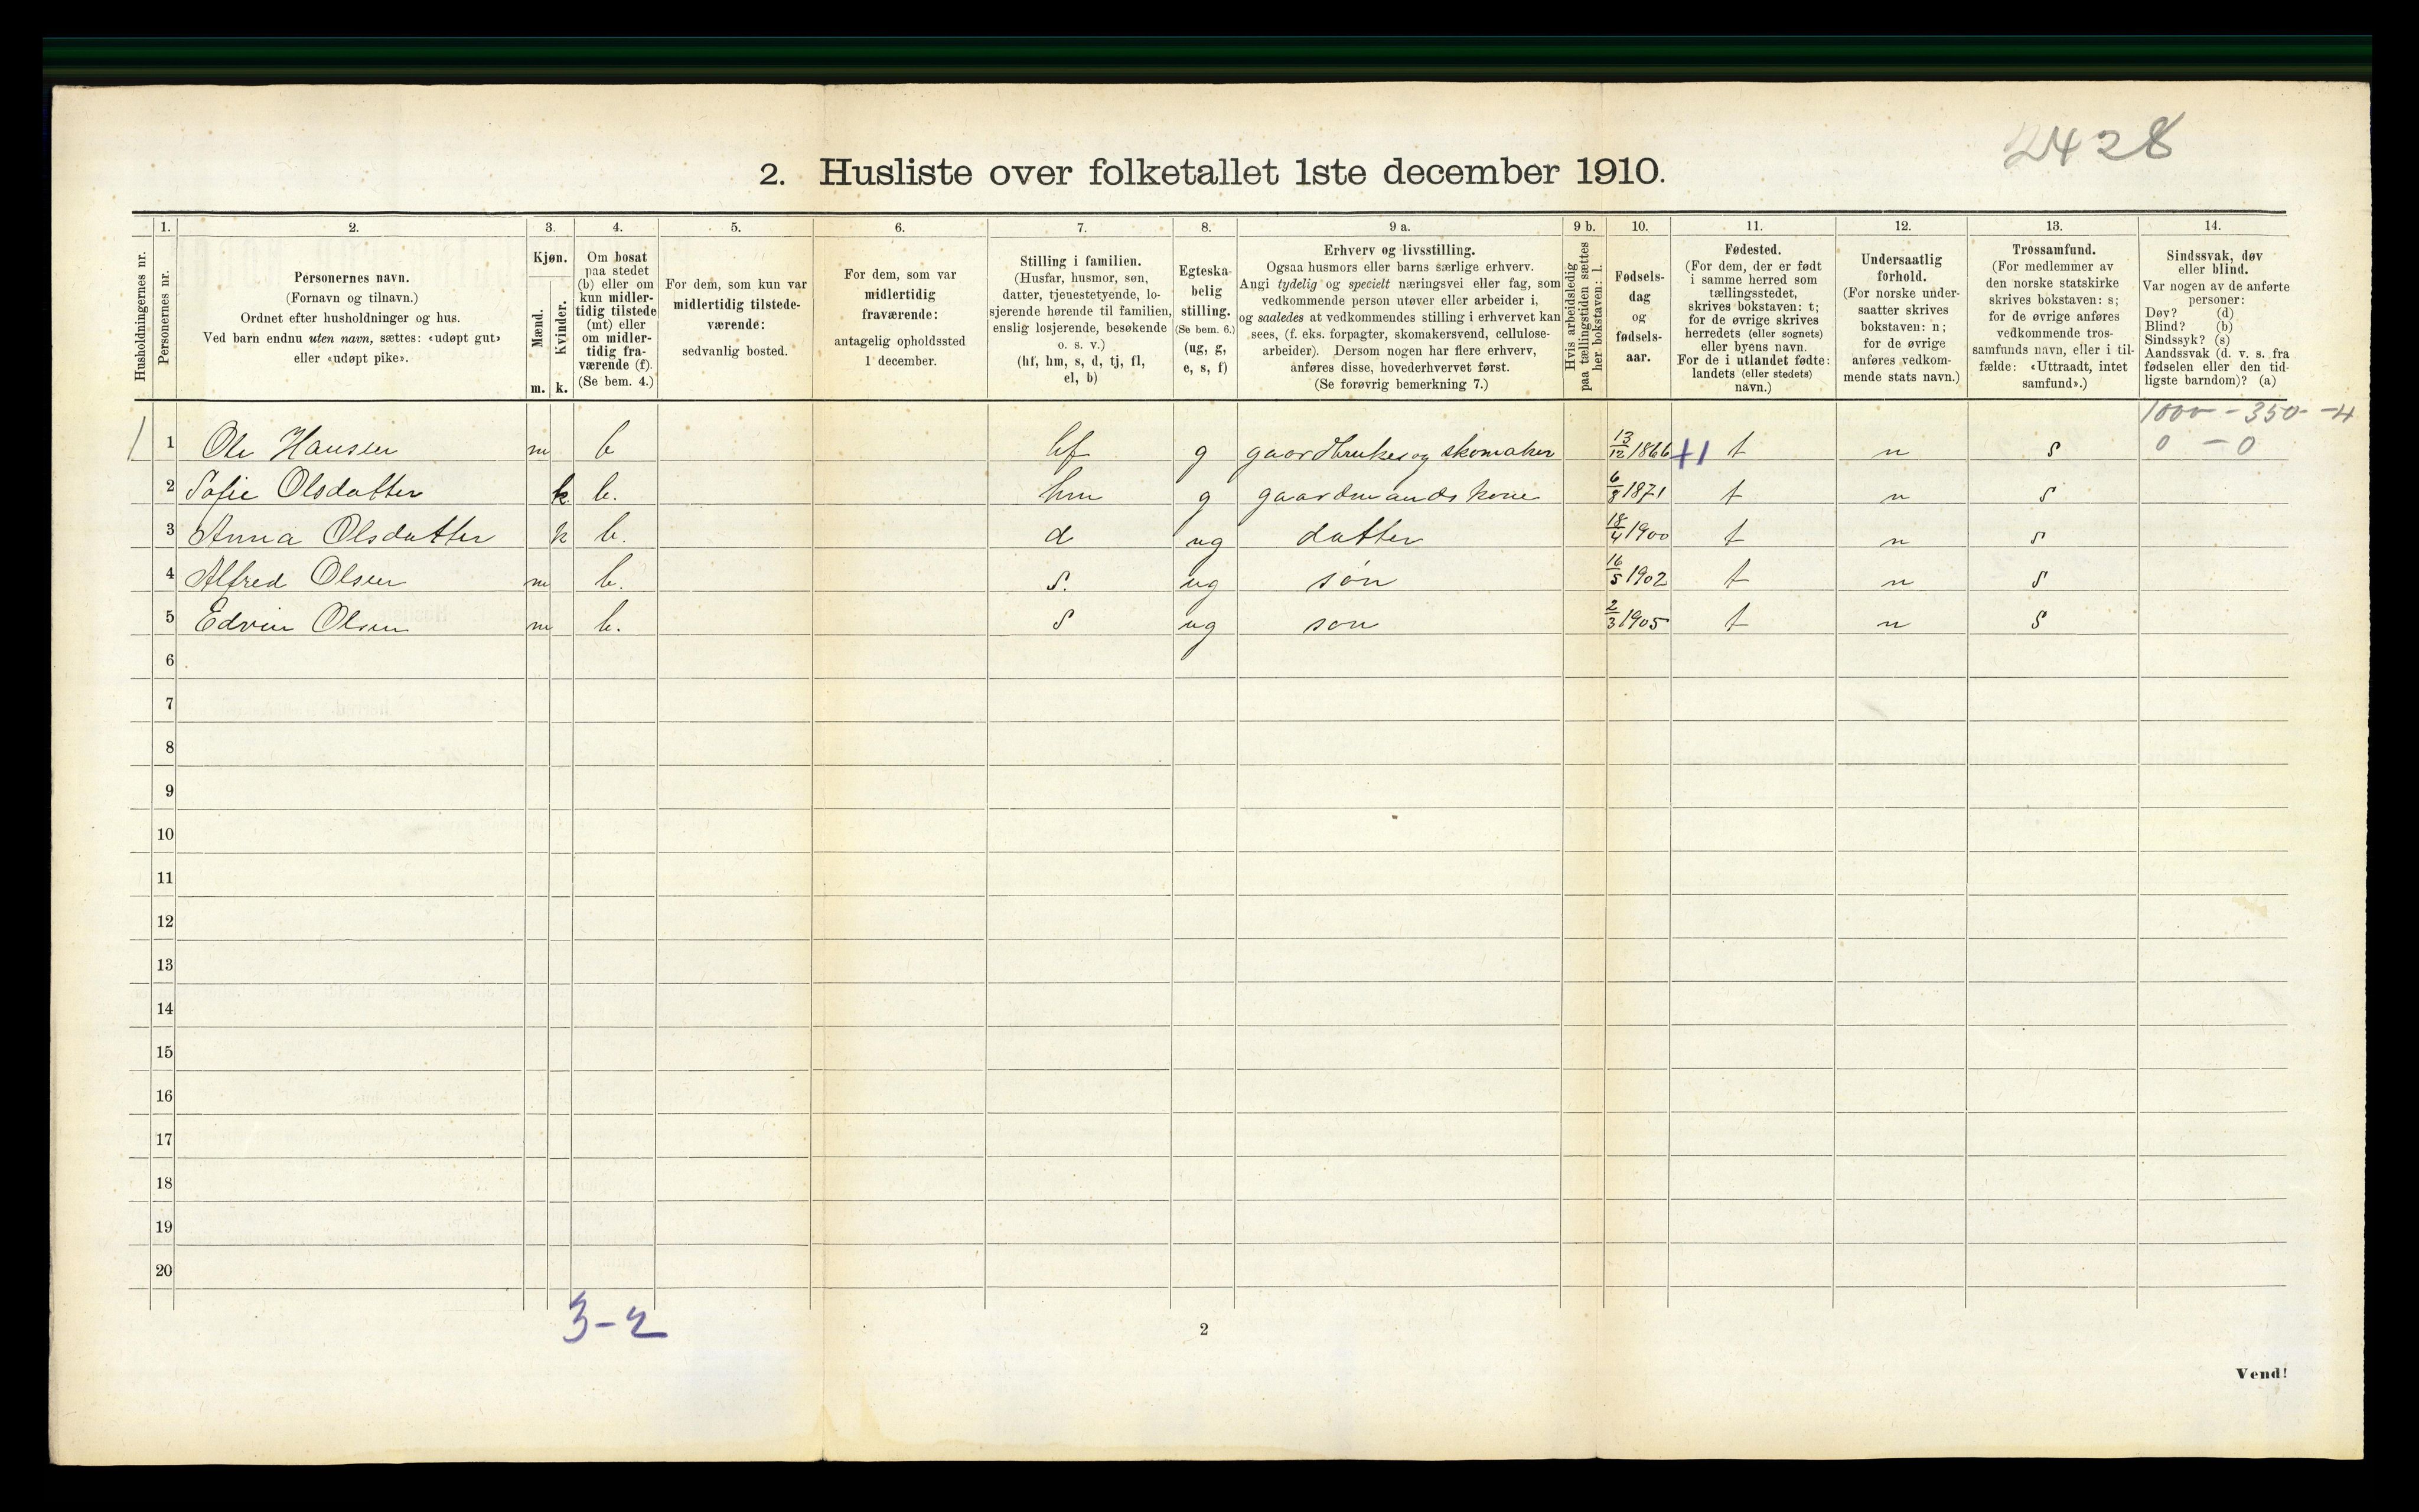 2428
2. Husliste over folketallet 1ste december 1910.
Husholdningernes nr.
1. Personernes nr.
2. Personernes navn.
(Fornavn og tilnavn.)
Ordnet efter husholdninger og hus.
Ved barn endnu uten navn, sættes: «udøpt gut»
eller «udøpt pike».
3. Kjøn.
Mænd. m.
Kvinder. k.
4. Om bosat
paa stedet
(b) eller om
kun midler-
tidig tilstede
(mt) eller
om midler-
tidig fra-
værende (f).
(Se bem. 4.)
5. For dem, som kun var
midlertidig tilstede-
værende:
sedvanlig bosted.
6. For dem, som var
midlertidig
fraværende:
antagelig opholdssted
1 december.
7. Stilling i familien.
(Husfar, husmor, søn,
datter, tjenestetyende, lo-
sjerende hørende til familien,
enslig losjerende, besøkende
o. s. v.)
(hf, hm, s, d, tj, fl,
el, b)
8. Egteska-
belig
stilling.
(Se bem. 6.)
(ug, g,
e, s, f)
9 a. Erhverv og livsstilling.
Ogsaa husmors eller barns særlige erhverv.
Angi tydelig og specielt næringsvei eller fag, som
vedkommende person utøver eller arbeider i,
og saaledes at vedkommendes stilling i erhvervet kan
sees, (f. eks. forpagter, skomakersvend, cellulose-
arbeider). Dersom nogen har flere erhverv,
anføres disse, hovederhvervet først.
(Se forøvrig bemerkning 7.)
9 b. Hvis arbeidsledig
paa tællingstiden sættes
her bokstaven: l.
10. Fødsels-
dag
og
fødsels-
aar.
11. Fødested.
(For dem, der er født
i samme herred som
tællingsstedet,
skrives bokstaven: t;
for de øvrige skrives
herredets (eller sognets)
eller byens navn.
For de i utlandet fødte:
landets (eller stedets)
navn.)
12. Undersaatlig
forhold.
(For norske under-
saatter skrives
bokstaven: n;
for de øvrige
anføres vedkom-
mende stats navn.)
13. Trossamfund.
(For medlemmer av
den norske statskirke
skrives bokstaven: s;
for de øvrige anføres
vedkommende tros-
samfunds navn, eller i til-
fælde: «Uttraadt, intet
samfund».)
14. Sindssvak, døv
eller blind.
Var nogen av de anførte
personer:
Døv? (d)
Blind? (b)
Sindssyk? (s)
Aandssvak (d. v. s. fra
fødselen eller den tid-
ligste barndom)? (a)
1000 - 350 - 4
1 1 Ole Hansen m b hf g gaardbruker og skomaker 13/12 1866 +1 t n s 0 - 0
2 Sofie Olsdatter k b. hm g gaardmands kone 6/8 1871 t n s
3 Anna Olsdatter k b. d ug datter 18/4 1900 t n s
4 Alfred Olsen m b. s. ug søn 16/5 1902 t n s
5 Edvin Olsen m b. s ug søn 2/3 1905 t n s
6
7
8
9
10
11
12
13
14
15
16
17
18
19
20
3-2
2
Vend!